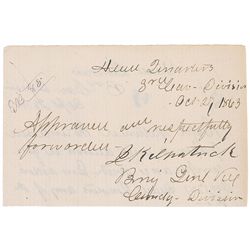 Head Quarters
3rd Cav- Division
Oct- 27, 1863
Approved and respectfully
forwarded
J Kilpatrick
Brig Genl Vol
Comdg- Division